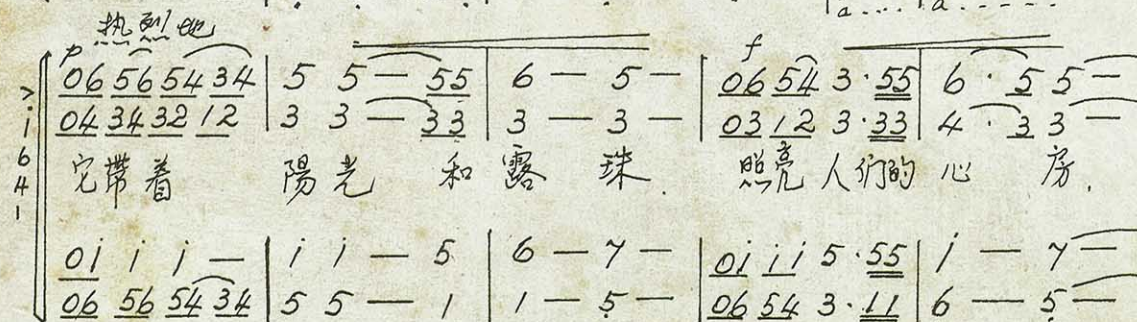 a . . . . | a . - - - - -
热烈地
p f
06 56 54 34 | 5 5 — 55 | 6 — 5 — | 06 54 3 · 55 | 6 · 5 5 —
04 34 32 12 | 3 3 — 33 | 3 — 3 — | 03 12 3 · 33 | 4 · 3 3 —
它带着 陽光 和 露 珠. 照亮人们的 心 房.
0i i i — | i i — 5 | 6 — 7 — | 0i ii 5 · 55 | i — 7 —
06 56 54 34 | 5 5 — 1 | 1 — 5 — | 06 54 3 · 11 | 6 — 5 —